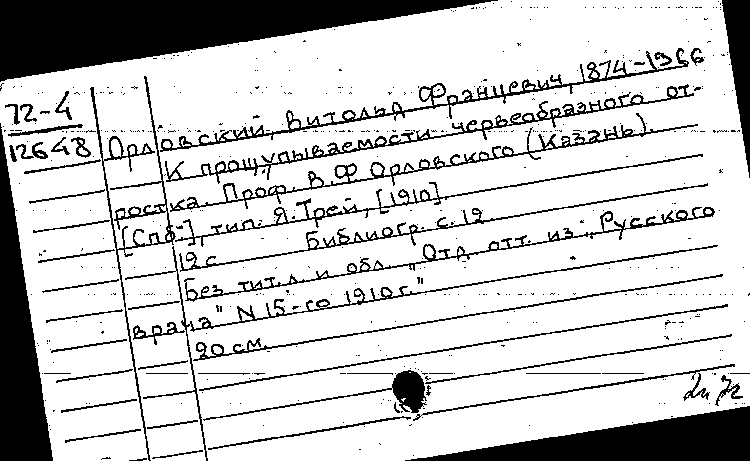 72-4
12648
Орловский, Витольд Францевич, 1874-1966
К прощупываемости червеобразного от-
ростка. Проф. В.Ф Орловского (Казань).
[Спб.], тип. Я. Трей, [1910].
12 с Библиогр. с. 12.
Без тит. л. и обл. "Отд. отт. из „Русского
врача" N 15-го 1910 г."
20 см.